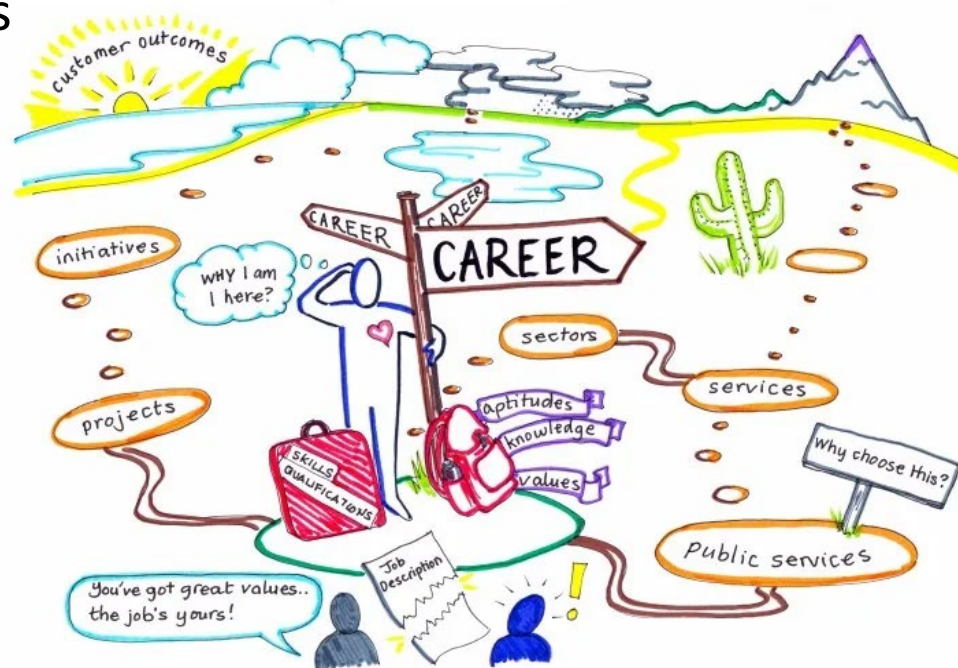 s
customer outcomes
CAREER
CAREER
CAREER
initiatives
WHY I am
I here?
sectors
services
projects
aptitudes
knowledge
values
SKILLS
QUALIFICATIONS
Why choose this?
public services
Job
Description
You've got great values..
the job's yours!
!